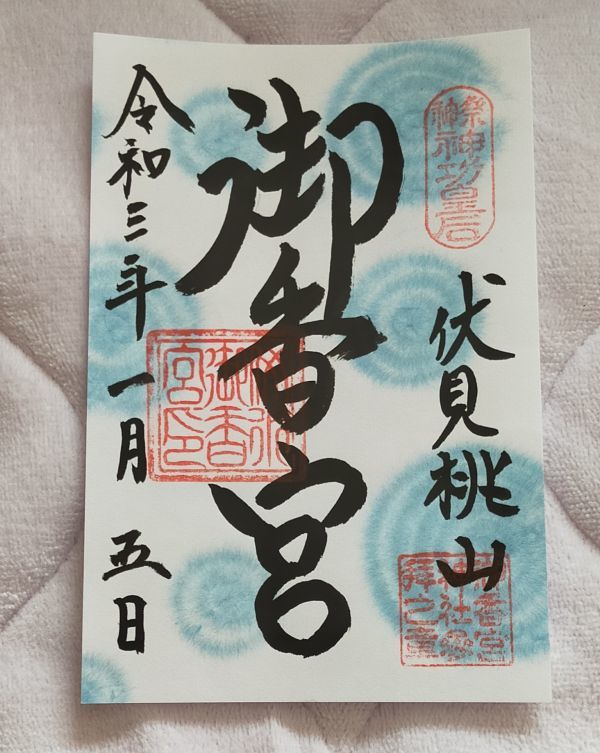 祭神
神功皇后
伏見桃山
御香宮
神社参
拝之章
御香宮
令和三年一月五日